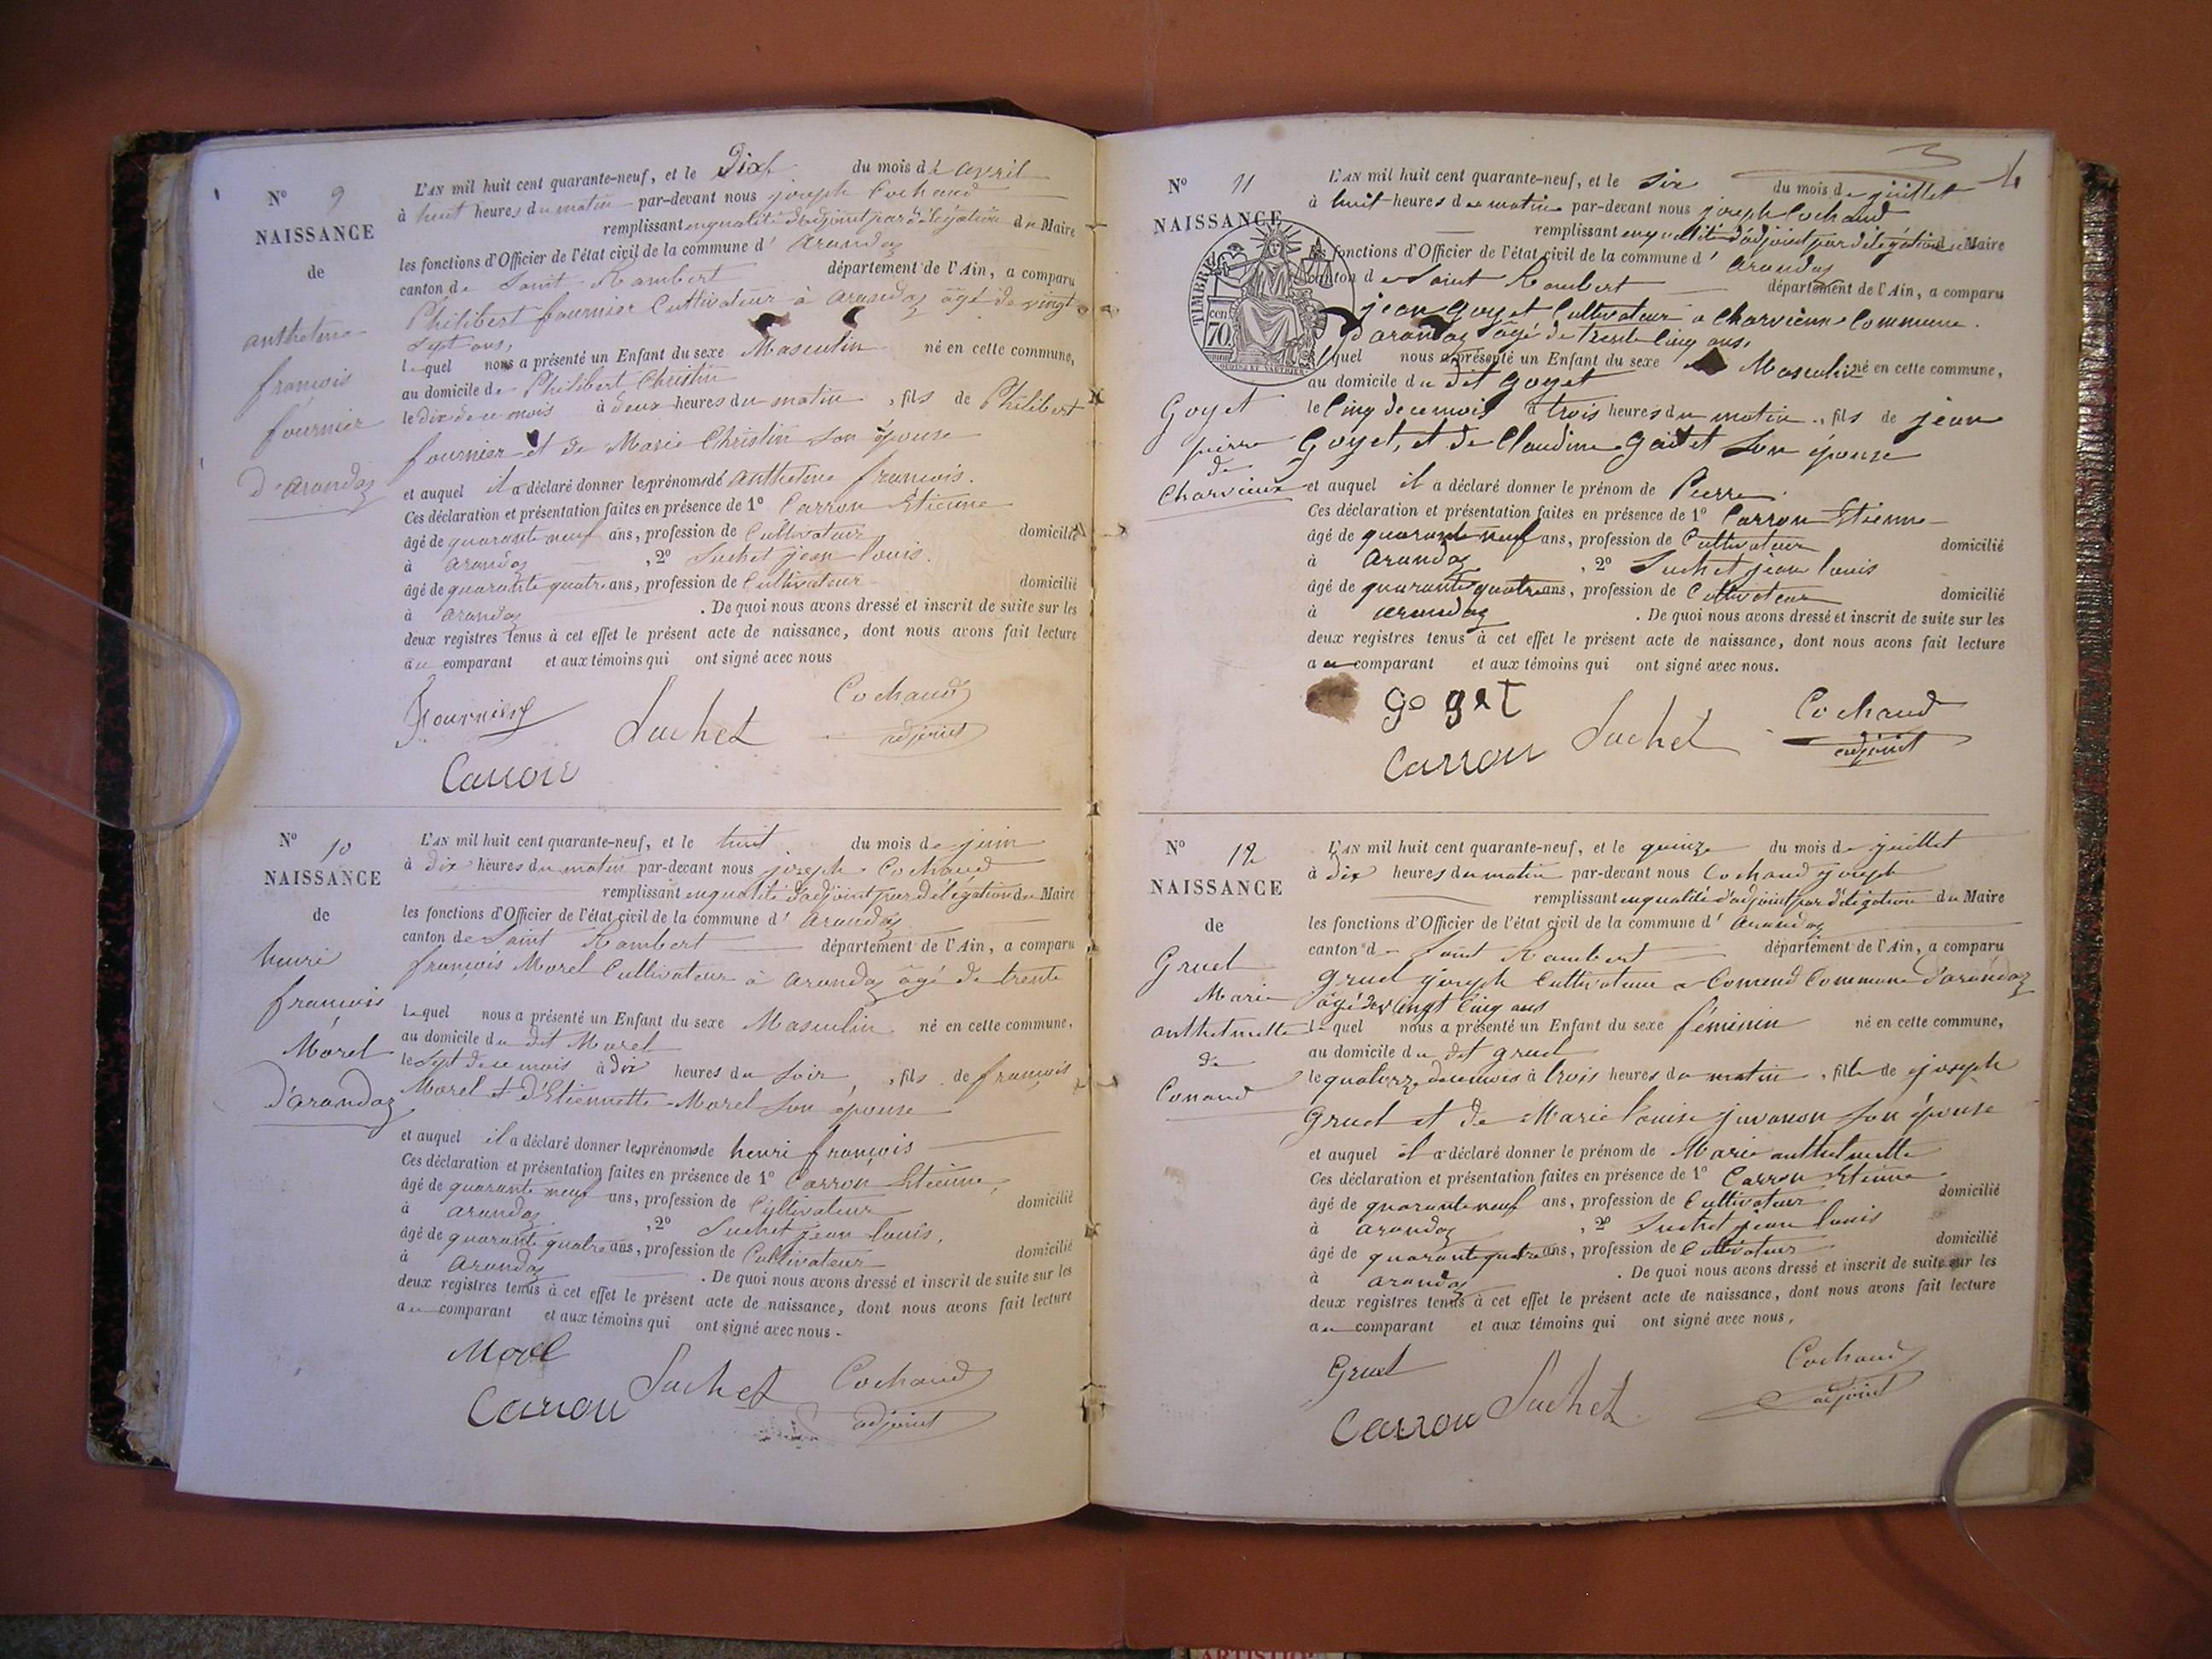 N° 9
NAISSANCE
de
anthelme
françois
fournier
d'arandaz
L'AN mil huit cent quarante-neuf, et le Dix du mois de avril
à huit heures du matin par-devant nous joseph Cochaud
remplissant en qualité d'adjoint par délégation du Maire
les fonctions d'Officier de l'état civil de la commune d' arandaz
canton de Saint Rambert département de l'Ain, a comparu
Philibert fournier Cultivateur à arandaz âgé de vingt
sept ans,
lequel nous a présenté un Enfant du sexe Masculin né en cette commune,
au domicile de Philibert Christin
le dix de ce mois à deux heures du matin, fils de Philibert
fournier et de Marie Christin son épouse
et auquel il a déclaré donner les prénoms de anthelme françois.
Ces déclaration et présentation faites en présence de 1° Carron Etienne
âgé de quarante neuf ans, profession de Cultivateur domicilié
à arandaz , 2° Suchet jean louis.
âgé de quarante quatre ans, profession de Cultivateur domicilié
à arandaz . De quoi nous avons dressé et inscrit de suite sur les
deux registres tenus à cet effet le présent acte de naissance, dont nous avons fait lecture
au comparant et aux témoins qui ont signé avec nous
Fournier Suchet Cochaud
adjoint
Carron
N° 10
NAISSANCE
de
henri
françois
Morel
d'arandaz
L'AN mil huit cent quarante-neuf, et le huit du mois de juin
à dix heures du matin par-devant nous joseph Cochaud
remplissant en qualité d'adjoint par délégation du Maire
les fonctions d'Officier de l'état civil de la commune d' arandaz
canton de Saint Rambert département de l'Ain, a comparu
françois Morel Cultivateur à arandaz âgé de trente
lequel nous a présenté un Enfant du sexe Masculin né en cette commune,
au domicile du dit Morel
le sept de ce mois à dix heures du soir, fils de françois
Morel et d'Etiennette Morel son épouse
et auquel il a déclaré donner les prénoms de henri françois
Ces déclaration et présentation faites en présence de 1° Carron Etienne,
âgé de quarante neuf ans, profession de Cultivateur domicilié
à arandaz , 2° Suchet jean louis,
âgé de quarante quatre ans, profession de Cultivateur domicilié
à arandaz . De quoi nous avons dressé et inscrit de suite sur les
deux registres tenus à cet effet le présent acte de naissance, dont nous avons fait lecture
au comparant et aux témoins qui ont signé avec nous.
Morel
Carron Suchet Cochaud
adjoint
4
N° 11
NAISSANCE
TIMBRE
cen 70
Goyet
pierre
de
Charvieux
L'AN mil huit cent quarante-neuf, et le Six du mois de juillet
à huit heures du matin par-devant nous joseph Cochaud
remplissant en qualité d'adjoint par délégation du Maire
les fonctions d'Officier de l'état civil de la commune d' arandaz
canton de Saint Rambert département de l'Ain, a comparu
jean Goyet Cultivateur a Charvieux Commune
d'arandaz âgé de trente Cinq ans,
lequel nous a présenté un Enfant du sexe Masculin né en cette commune,
au domicile du dit Goyet
le Cinq de ce mois à trois heures du matin, fils de jean
Goyet, et de Claudine son épouse
et auquel il a déclaré donner le prénom de Pierre
Ces déclaration et présentation faites en présence de 1° Carron Etienne
âgé de quarante neuf ans, profession de Cultivateur domicilié
à arandaz , 2° Suchet jean louis
âgé de quarante quatre ans, profession de Cultivateur domicilié
à arandaz . De quoi nous avons dressé et inscrit de suite sur les
deux registres tenus à cet effet le présent acte de naissance, dont nous avons fait lecture
au comparant et aux témoins qui ont signé avec nous.
goyet Suchet Cochaud
Carron adjoint
N° 12
NAISSANCE
de
Gruel
Marie
anthelmette
de
Conand
L'AN mil huit cent quarante-neuf, et le quinze du mois de juillet
à dix heures du matin par-devant nous Cochaud joseph
remplissant en qualité d'adjoint par délégation du Maire
les fonctions d'Officier de l'état civil de la commune d' arandaz
canton de Saint Rambert département de l'Ain, a comparu
gruel joseph Cultivateur a Conand Commune d'arandaz
âgé de vingt Cinq ans
lequel nous a présenté un Enfant du sexe féminin né en cette commune,
au domicile du dit gruel
le quatorze de ce mois à trois heures du matin, fille de joseph
Gruel et de Marie louise juvanon son épouse
et auquel il a déclaré donner le prénom de Marie anthelmette
Ces déclaration et présentation faites en présence de 1° Carron Etienne
âgé de quarante neuf ans, profession de Cultivateur domicilié
à arandaz , 2° Suchet jean louis
âgé de quarante quatre ans, profession de Cultivateur domicilié
à arandaz . De quoi nous avons dressé et inscrit de suite sur les
deux registres tenus à cet effet le présent acte de naissance, dont nous avons fait lecture
au comparant et aux témoins qui ont signé avec nous,
Gruel Suchet Cochaud
Carron adjoint
ARTISTIQUE